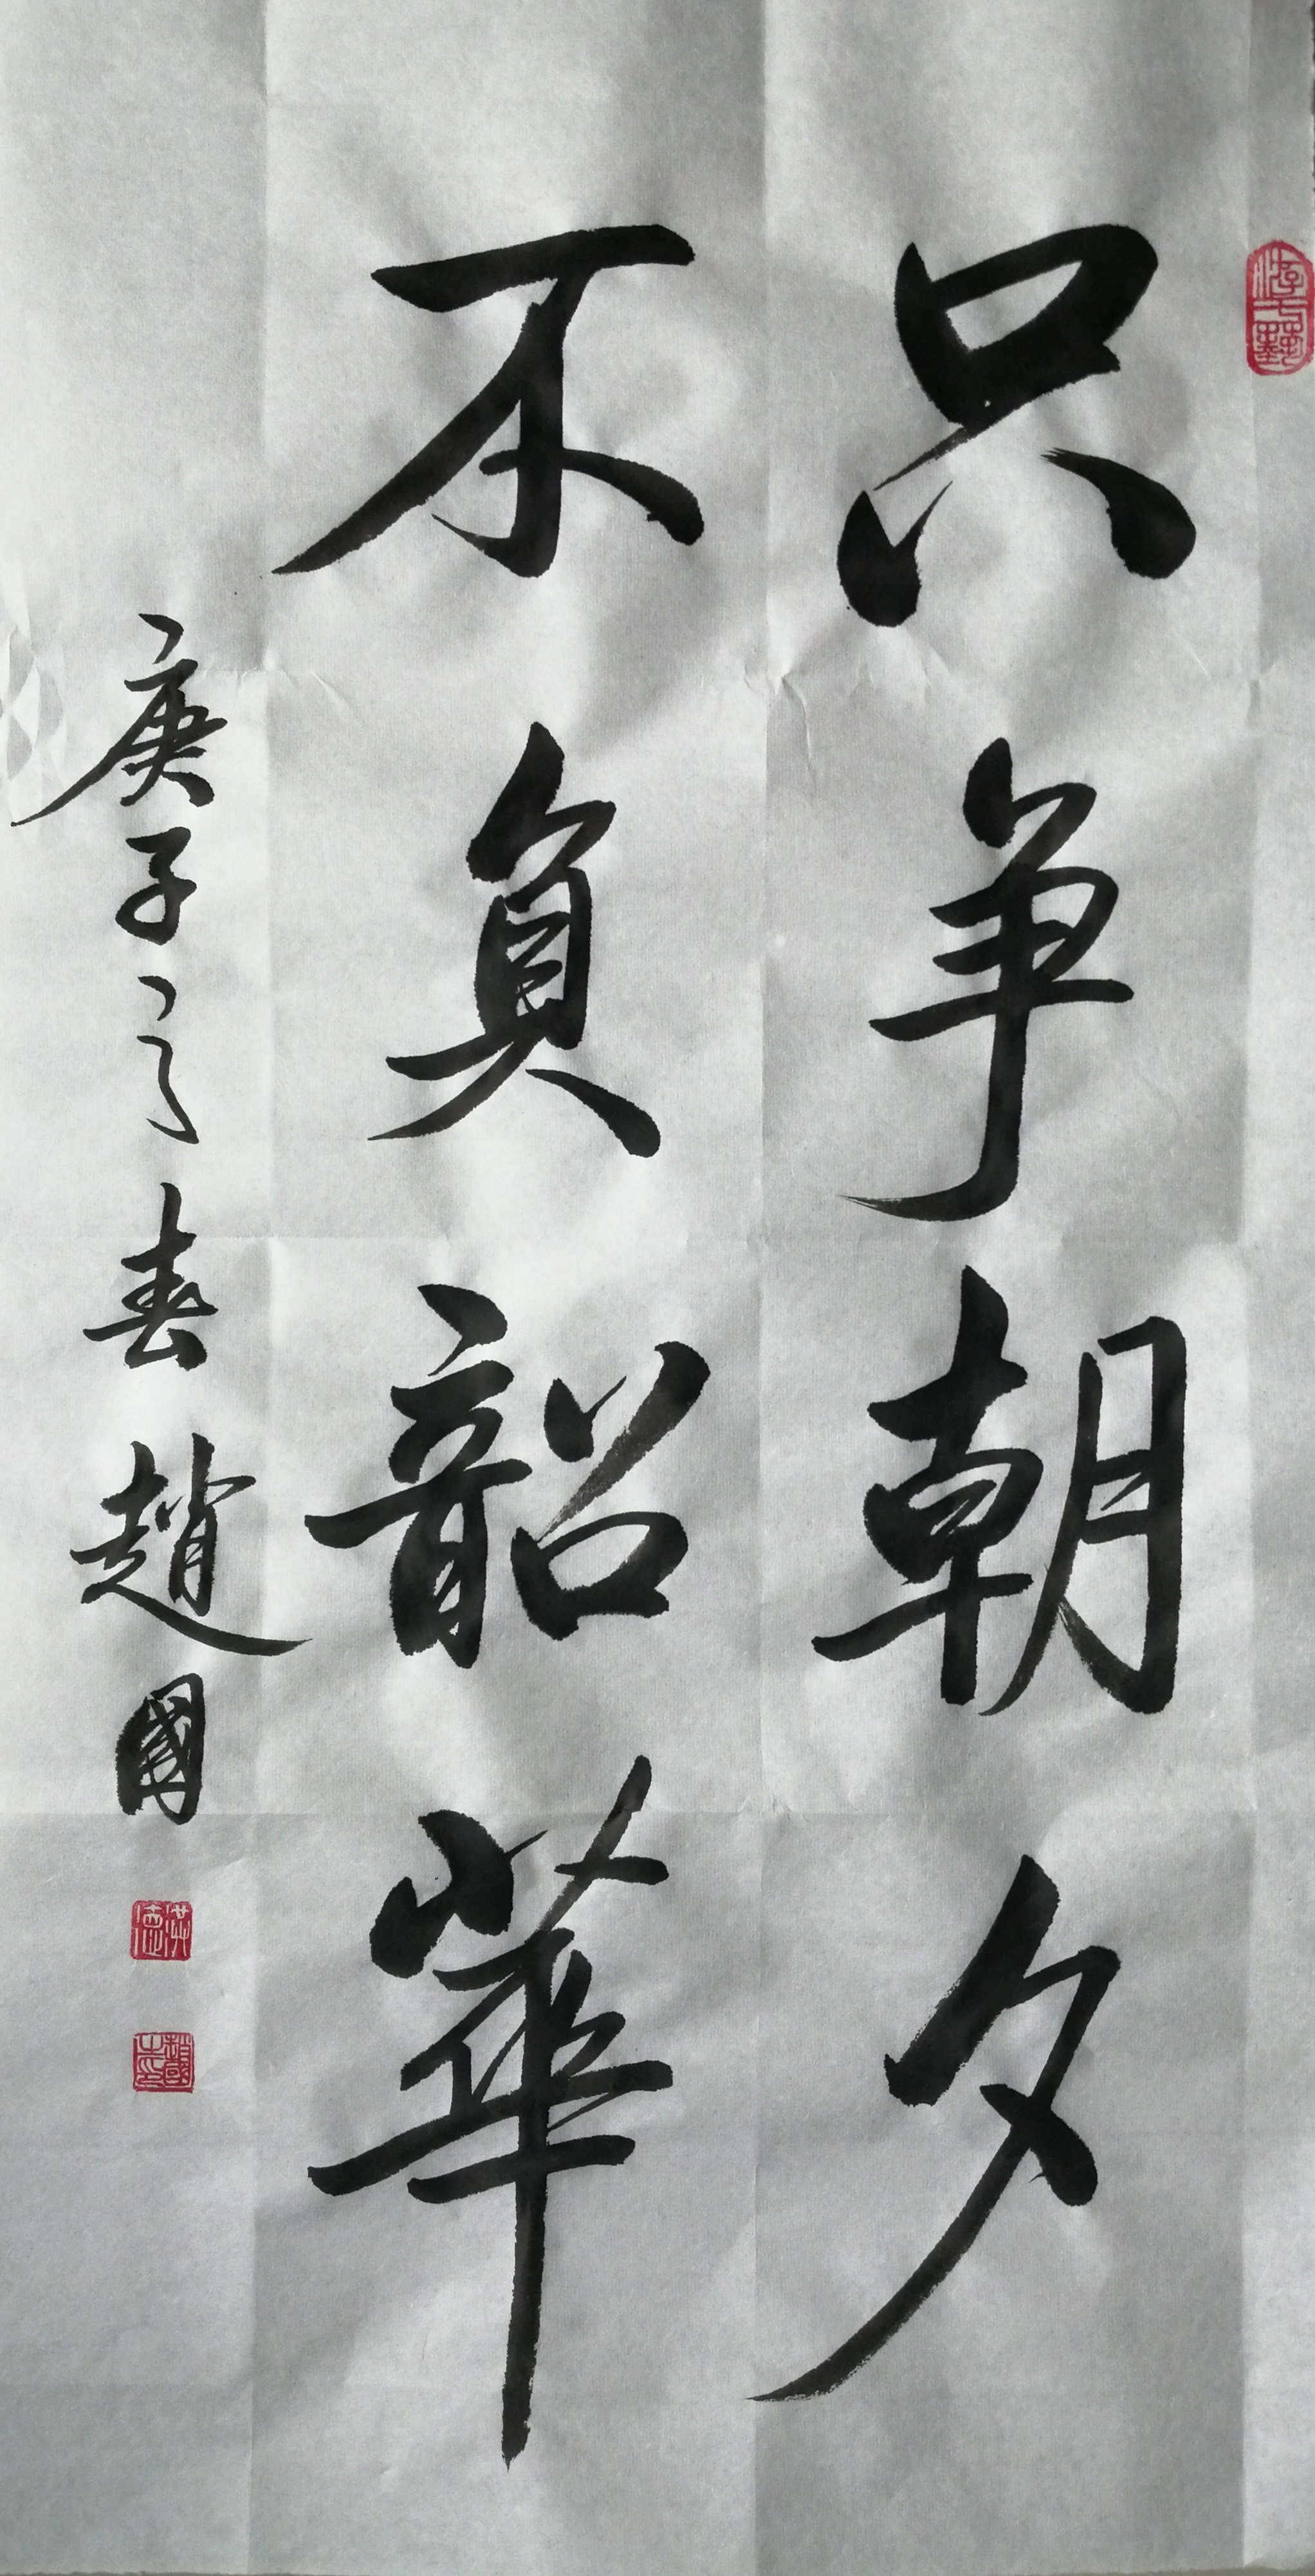 只争朝夕
不負韶華
庚子之春 趙國